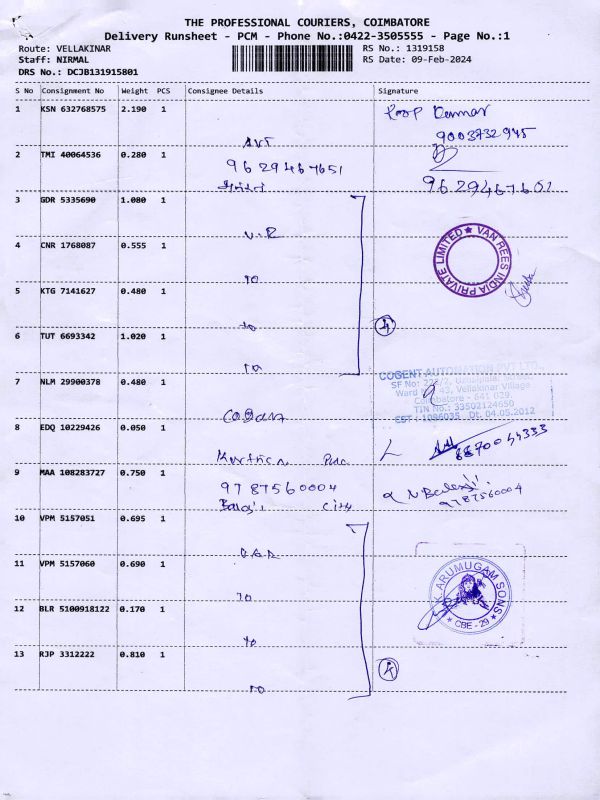 THE PROFESSIONAL COURIERS, COIMBATORE
Delivery Runsheet - PCM - Phone No.:0422-3505555 - Page No.:1
Route: VELLAKINAR
RS No.: 1319158
Staff: NIRMAL
RS Date: 09-Feb-2024
DRS No.: DCJB131915801
S No Consignment No Weight PCS Consignee Details Signature
1 KSN 632768575 2.190 1
9003732945
2 TMI 40064536 0.280 1
9629467651
9629467651
3 GDR 5335690 1.080 1
V.R
VAN REES INDIA PRIVATE LIMITED
4 CNR 1768087 0.555 1
TO
5 KTG 7141627 0.480 1
TO
4
6 TUT 6693342 1.020 1
TO
7 NLM 29900378 0.480 1
COGENT AUTOMATION PVT LTD.,
Vellakinar Village
Coimbatore - 641 029.
TIN No.: 33502124650
CST : 1086035 Dt. 04.05.2012
8 EDQ 10229426 0.050 1
9 MAA 108283727 0.750 1
9787560004
Balaji City
N Balaji
9787560004
10 VPM 5157051 0.695 1
11 VPM 5157060 0.690 1
TO
K. ARUMUGAM SONS
CBE - 29
12 BLR 5100918122 0.170 1
TO
13 RJP 3312222 0.810 1
TO
4